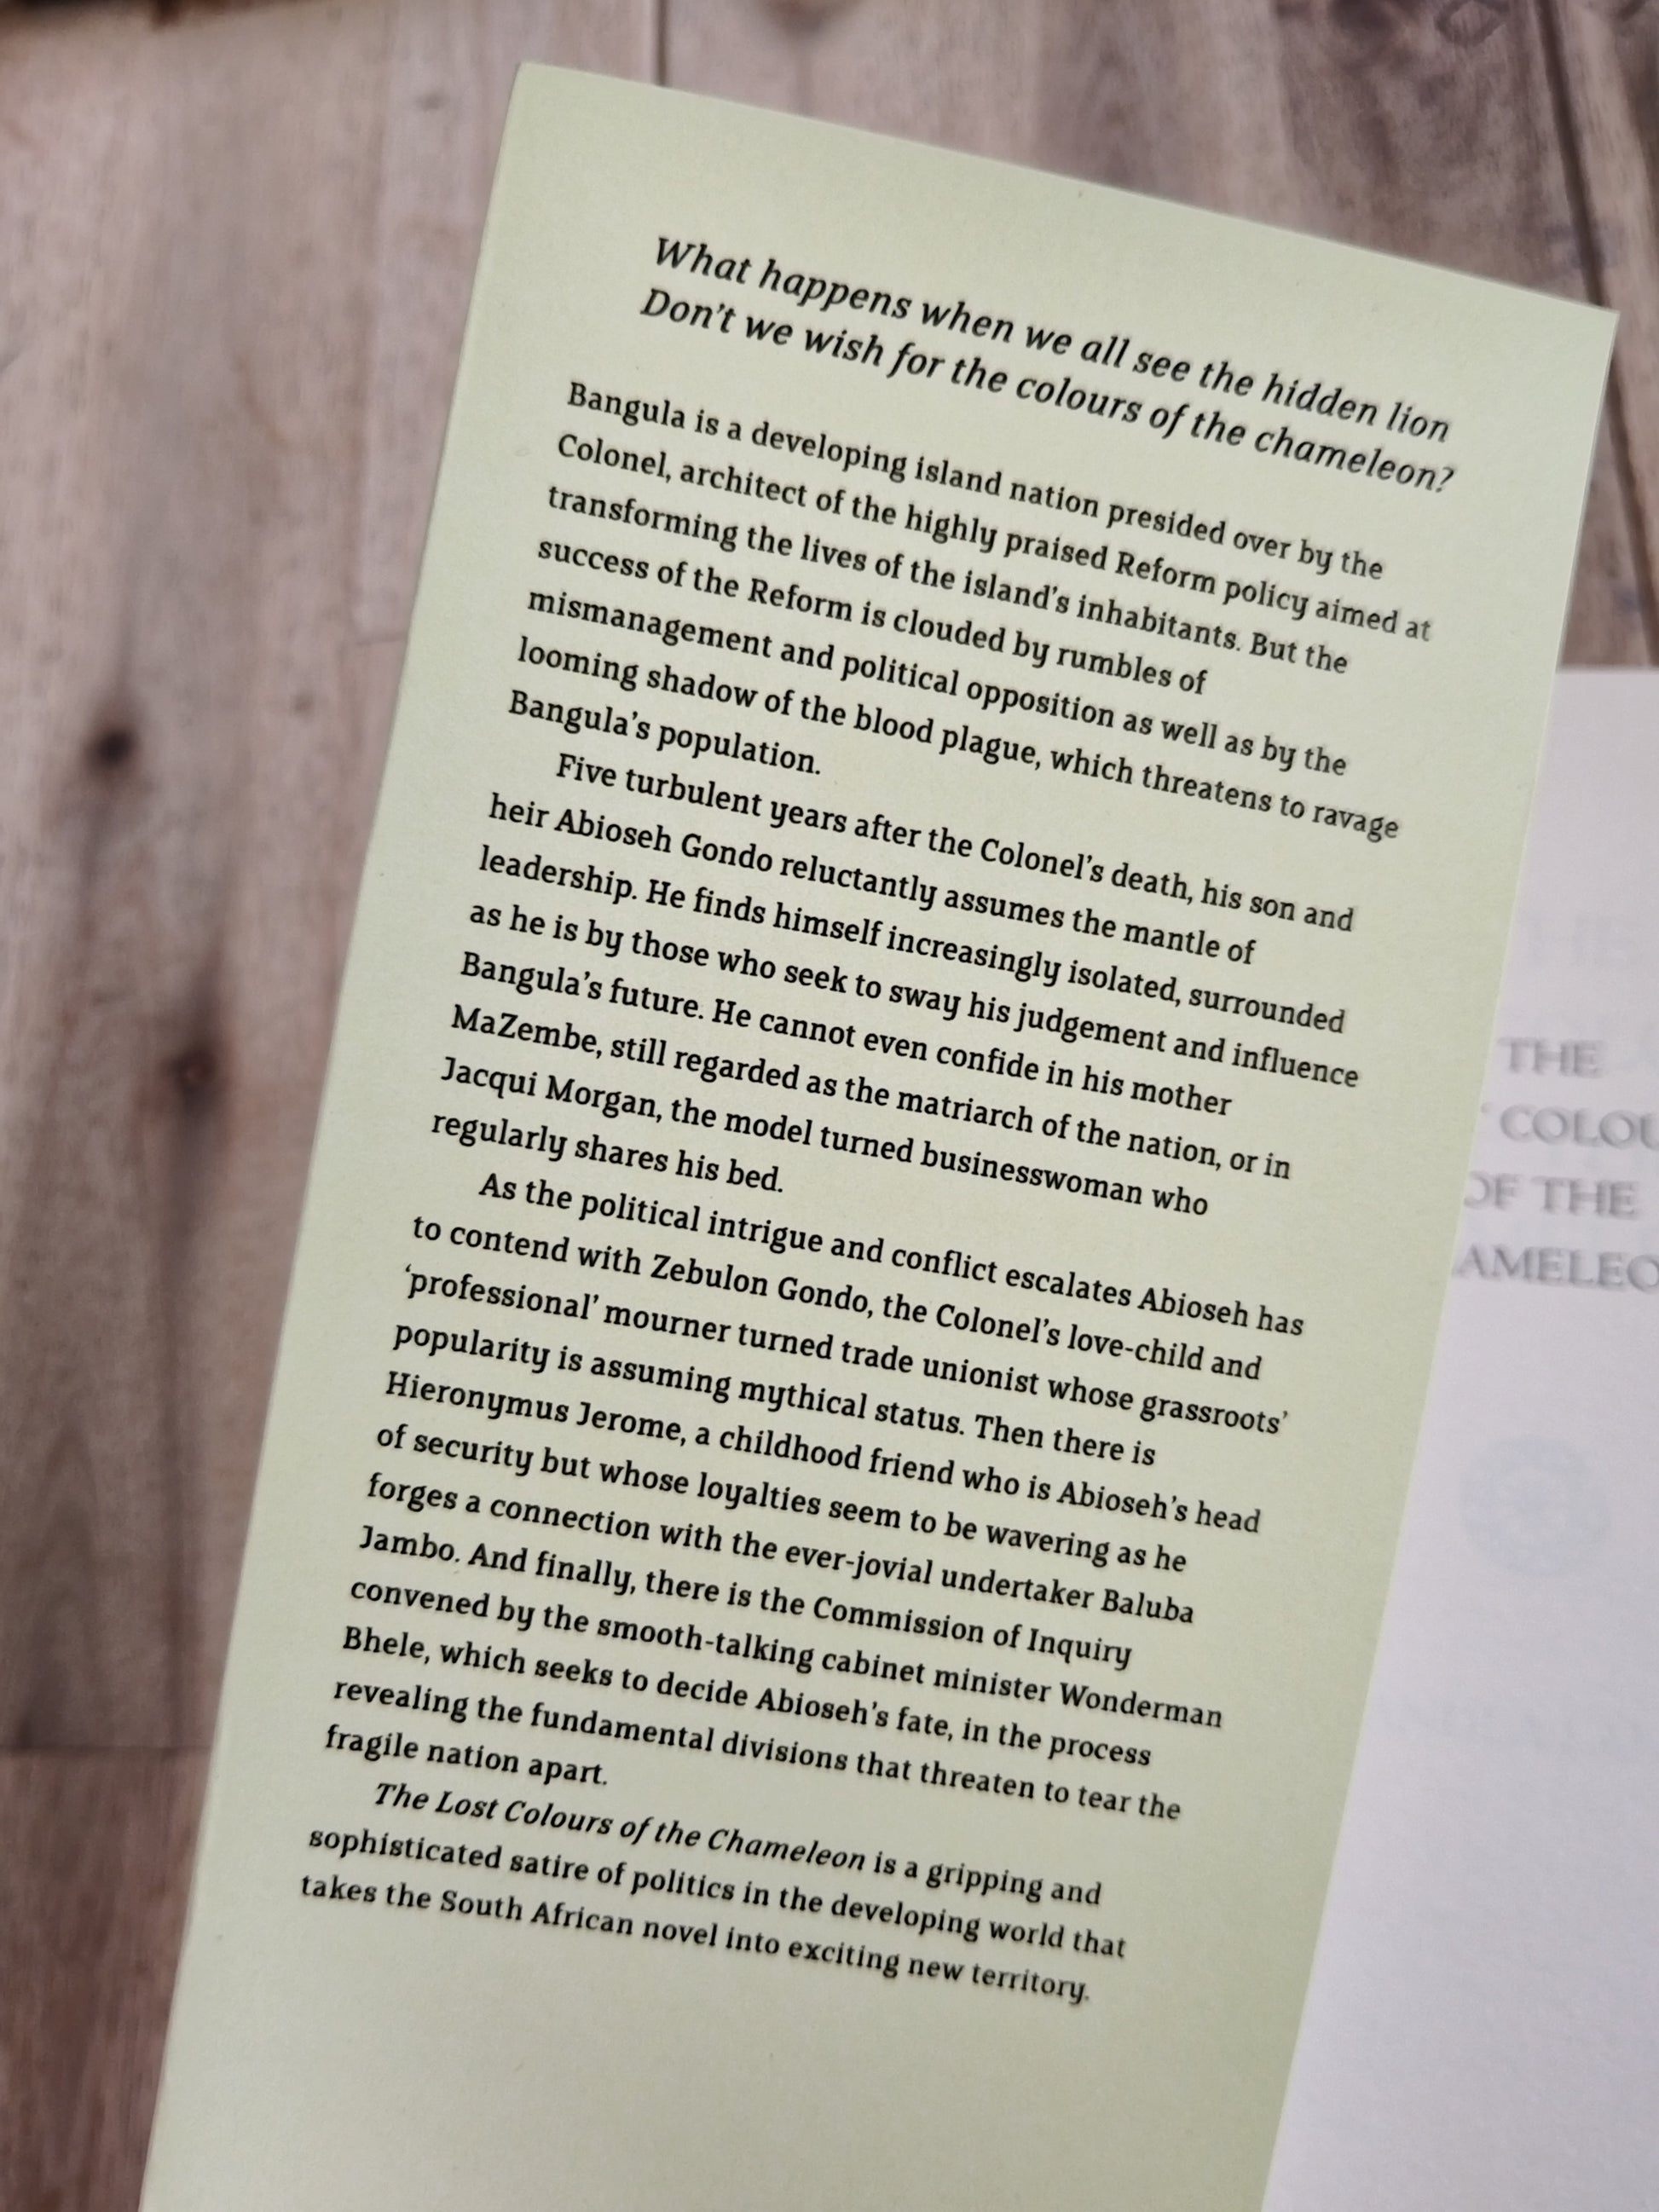 What happens when we all see the hidden lion
Don't we wish for the colours of the chameleon?
Bangula is a developing island nation presided over by the
Colonel, architect of the highly praised Reform policy aimed at
transforming the lives of the island's inhabitants. But the
success of the Reform is clouded by rumbles of
mismanagement and political opposition as well as by the
looming shadow of the blood plague, which threatens to ravage
Bangula's population.
Five turbulent years after the Colonel's death, his son and
heir Abioseh Gondo reluctantly assumes the mantle of
leadership. He finds himself increasingly isolated, surrounded
as he is by those who seek to sway his judgement and influence
Bangula's future. He cannot even confide in his mother
MaZembe, still regarded as the matriarch of the nation, or in
Jacqui Morgan, the model turned businesswoman who
regularly shares his bed.
As the political intrigue and conflict escalates Abioseh has
to contend with Zebulon Gondo, the Colonel's love-child and
‘professional’ mourner turned trade unionist whose grassroots’
popularity is assuming mythical status. Then there is
Hieronymus Jerome, a childhood friend who is Abioseh's head
of security but whose loyalties seem to be wavering as he
forges a connection with the ever-jovial undertaker Baluba
Jambo. And finally, there is the Commission of Inquiry
convened by the smooth-talking cabinet minister Wonderman
Bhele, which seeks to decide Abioseh's fate, in the process
revealing the fundamental divisions that threaten to tear the
fragile nation apart.
The Lost Colours of the Chameleon is a gripping and
sophisticated satire of politics in the developing world that
takes the South African novel into exciting new territory.
THE
COLOU
OF THE
AMELEO